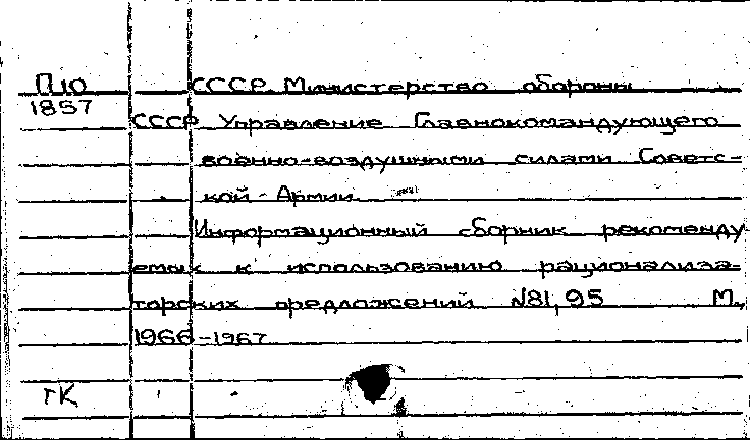 П10 СССР. Министерство обороны
1857
СССР Управление Главнокомандующего
военно-воздушными силами Советс-
кой Армии
Информационный сборник рекоменду
емых к использованию рационализа-
торских предложений №81, 95 М.,
1966-1967
ГК